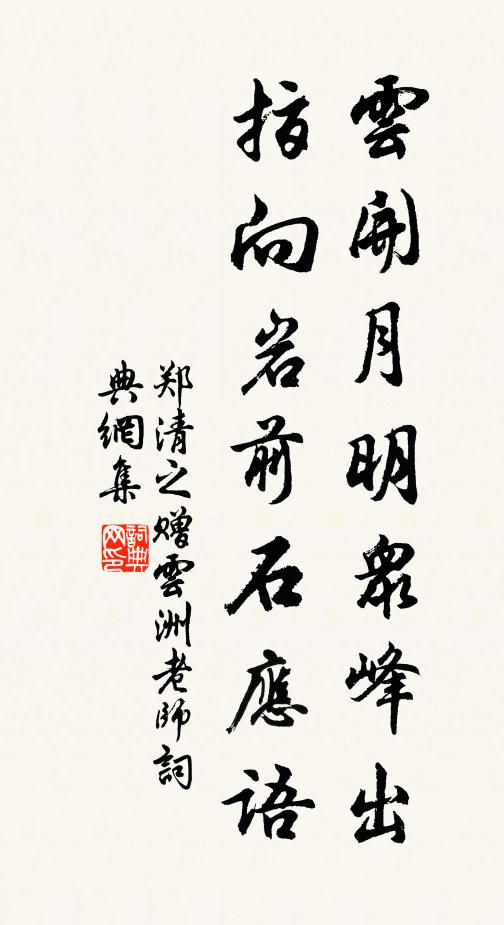 雲開月明衆峰出
指向岩前石應語
郑清之赠雲洲老師詞
典網集
詞典网印